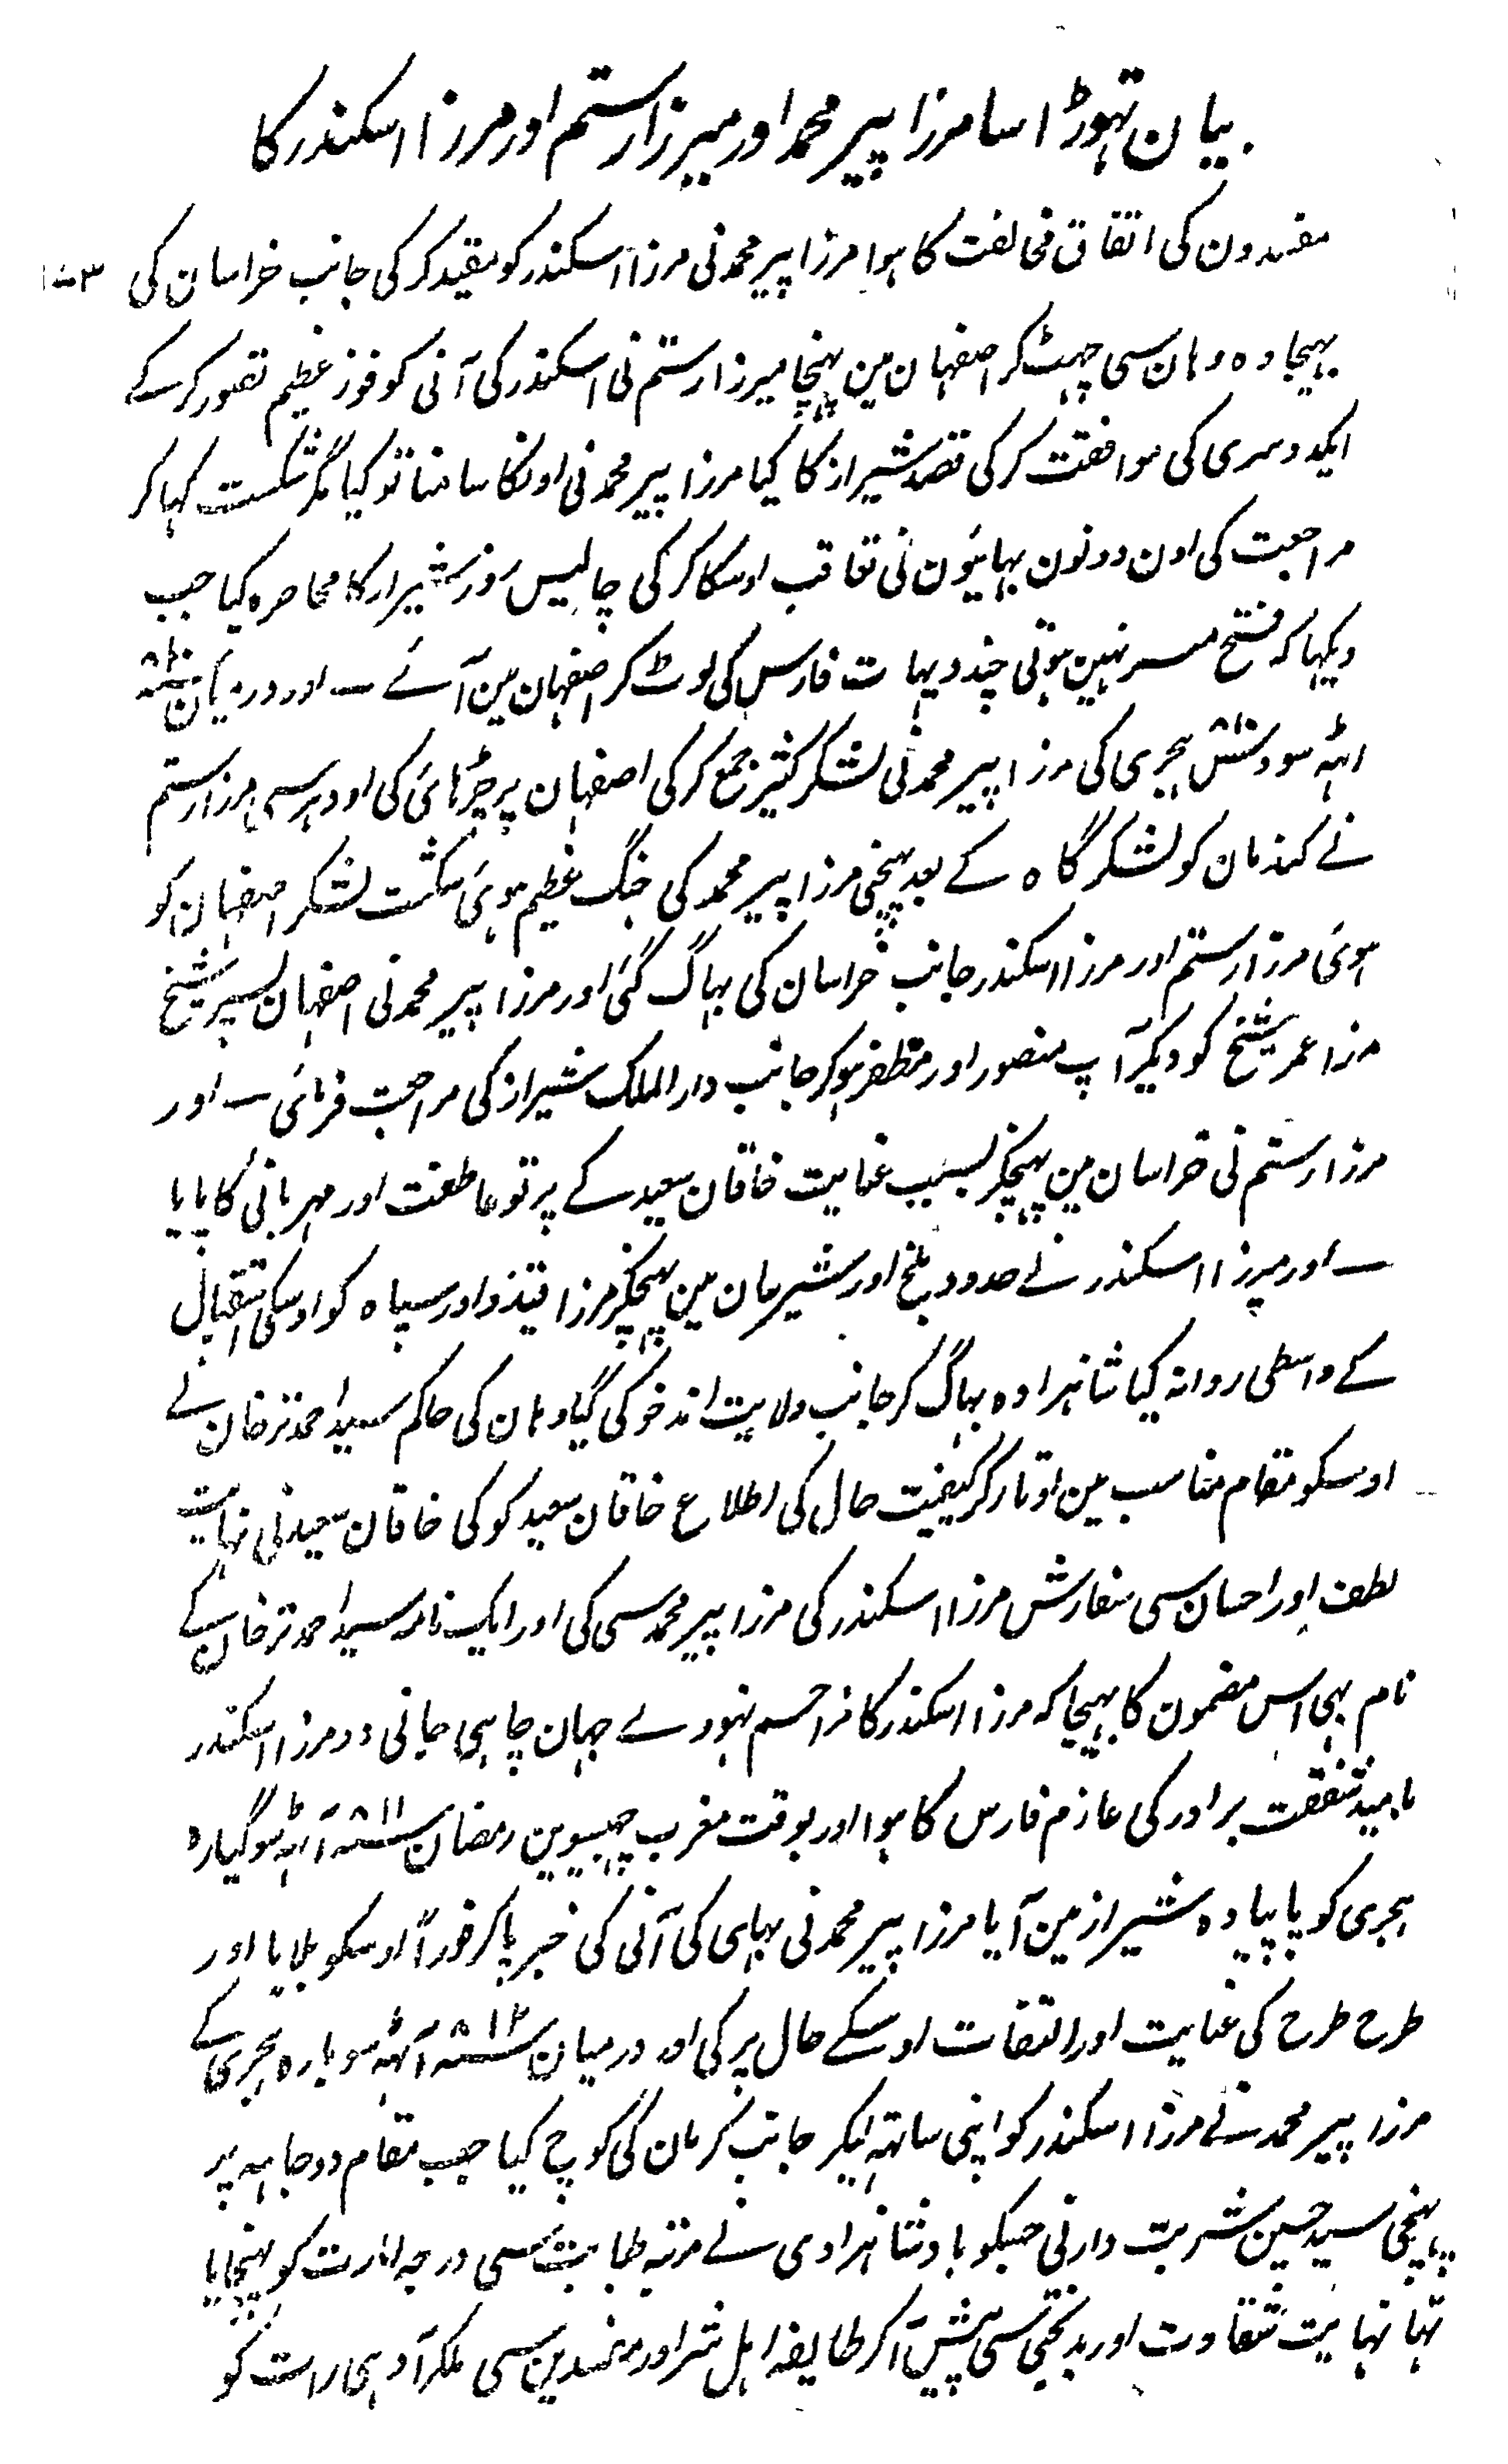 بیان تہوڑا سا مرزا پیر محمد اور میرزا رستم اور مرزا اسکندر کا
مفسدون کی اتفاق مخالفت کا ہوا مرزا پیر محمد نی مرزا اسکندر کو مقید کر کی جانب خراسان کی
بہیجا وہ وہان سی چہٹ کر اصفہان مین پہنچا میرزا رستم نی اسکندر کی آنی کو فوز عظیم تصور کر کے
ایکد وسری کی موافقت کر کی قصد شیراز کا کیا مرزا پیر محمد نی اونکا سامنا تو کیا مگر شکست کہا کر
مراجعت کی اون دونون بہائیون نی تعاقب اوسکا کر کی چالیس روز شیراز کا محاصرہ کیا جب
دیکہا کہ فتح میسر نہین ہوتی چند دیہات فارس کی لوٹ کر اصفہان مین آئے ـ اور درمیان سنہ ۸۱۰
اٹہہ سو دس ہجری کی مرزا پیر محمد نی لشکر کثیر جمع کر کی اصفہان پر چڑہائی کی اودہر سی مرزا رستم
نے کندمان کو لشکر گاہ کے بعد پہنچنی مرزا پیر محمد کی جنگ عظیم ہوئی شکست لشکر اصفہان کو
ہوئی مرزا رستم اور مرزا اسکندر جانب خراسان کی بہاگ گئی اور مرزا پیر محمد نی اصفہان پسر شیخ
مرزا عمر شیخ کو دیکر آپ منصور اور مظفر ہوکر جانب دارالملک شیراز کی مراجعت فرمائی ـ اور
مرزا رستم نی خراسان مین پہنچکر بسبب عنایت خاقان سعید کے پرتو عاطفت اور مہربانی کا پایا
ـ اور میرزا اسکندر نے حدود بلخ اور شیرمان مین پہنچکر مرزا قیدو اور سپاہ کو اوسکی استقبال
کے واسطی روانہ کیا شاہزادہ بہاگ کر جانب ولایت اندخو کی گیا وہان کی حاکم سید احمد ترخان نے
اوسکو مقام مناسب مین اوتار کر کیفیت حال کی اطلاع خاقان سعید کو کی خاقان سعید نی نہایت
لطف اور احسان سی سفارش مرزا اسکندر کی مرزا پیر محمد سی کی اور ایک نامہ سید احمد ترخان کے
نام بہی اس مضمون کا بہیجا کہ مرزا اسکندر کا مزاحم نہووے جہان چاہی جانی دو مرزا اسکندر
بامید شفقت برادر کی عازم فارس کا ہوا اور بوقت مغرب چہبیسوین رمضان سنہ ۸۱۱ آٹہہ سو گیارہ
ہجری کو پاپیادہ شیراز مین آیا مرزا پیر محمد نی بہای کی آنی کی خبر پاکر فوراً اوسکو بلایا اور
طرح طرح کی عنایت اور التفات اوسکے حال پر کی اور درمیان سنہ ۸۱۲ آٹہہ سو بارہ ہجری کے
مرزا پیر محمد نے مرزا اسکندر کو اپنی ساتہہ لیکر جانب کرمان کی کوچ کیا جب مقام دوجاہہ پر
پہنچی سید حسین شربت دار نی جسکو بادشاہزادی نے مرتبہ طبابت سی درجہ امارت کو پہنچایا
تہا نہایت شقاوت اور بدبختی سی پیش آکر طایفہ اہل شر اور مفسدین سی ملکر آدہی رات کو